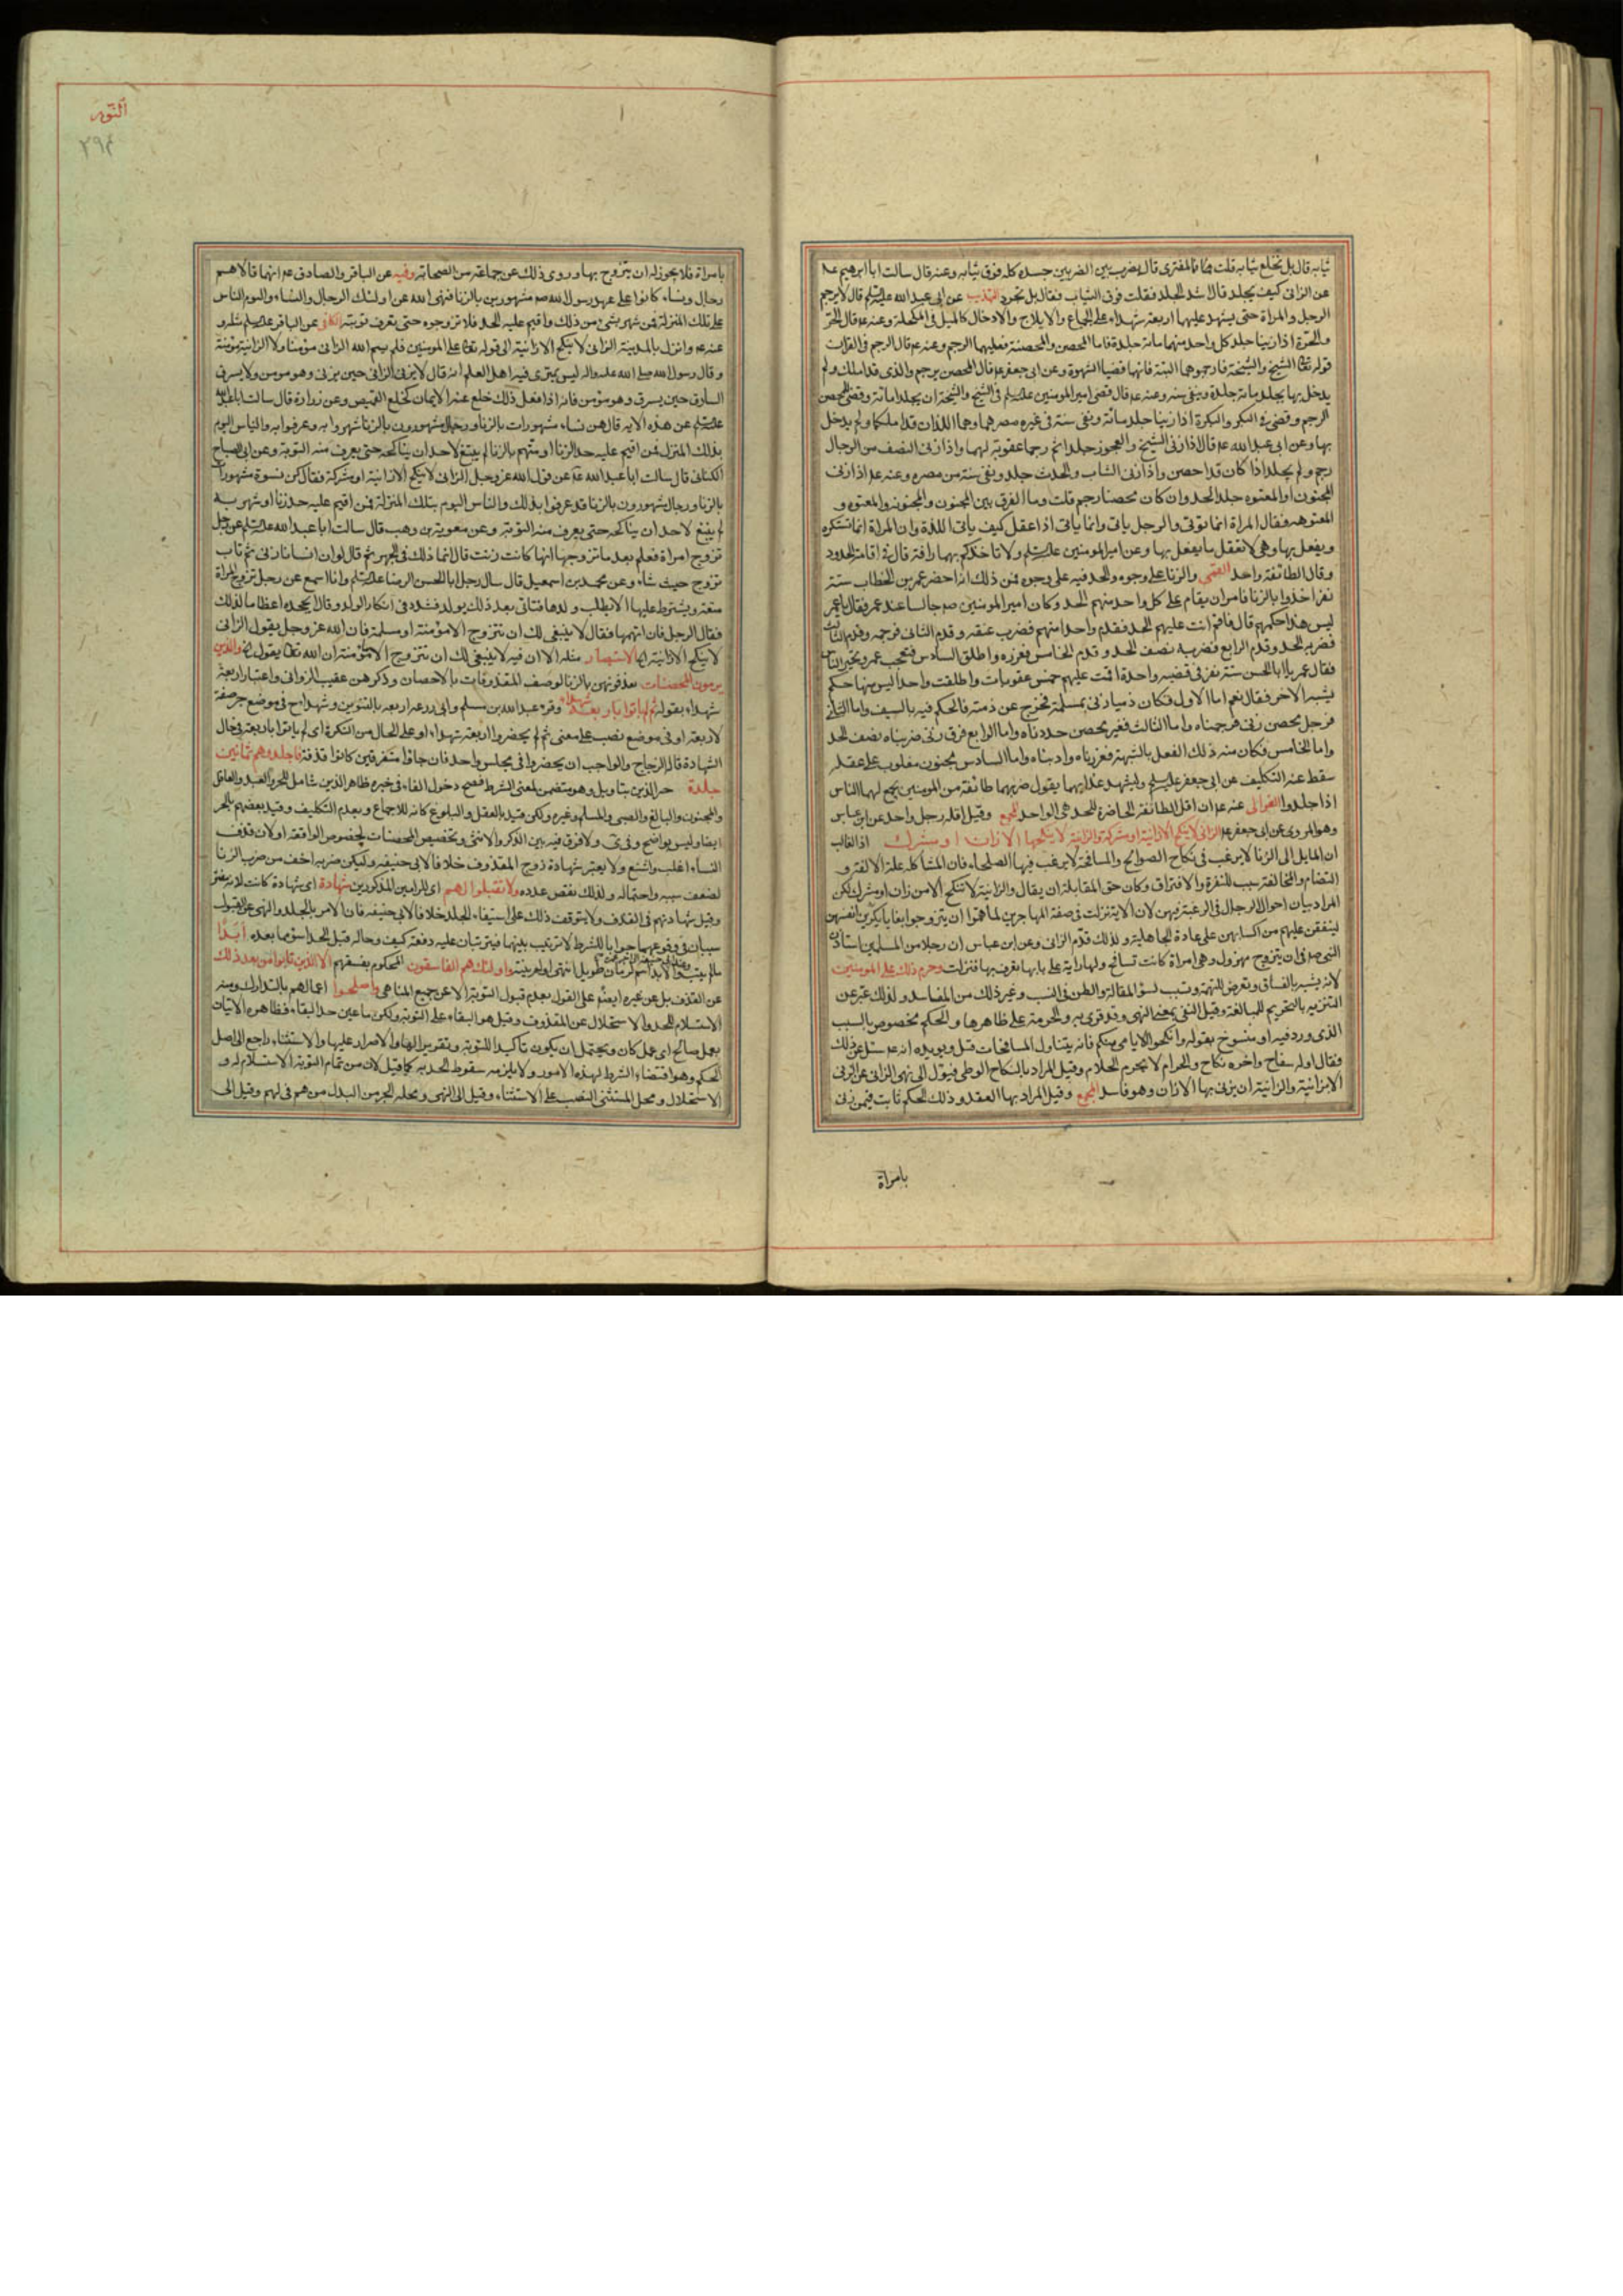 ثيابه قال بل تخلع ثيابه قلت فالمفترى قال يضرب بين الضربين جسده كله فوق ثيابه وعنه قال سالت ابا ابرهيم عم
عن الزانى كيف يجلد قال اشد الجلد فقلت فوق الثياب فقال بل تجرد التهذيب عن ابى عبد الله عليه السلم قال لا يرجم
الرجل والمراة حتى يشهد عليهما اربعة شهداء على الجماع والايلاج والادخال كالميل فى المكحلة وعنه عم قال الحر
والحرة اذا زنيا جلد كل واحد منهما مائة جلدة فاما المحصن والمحصنة فعليهما الرجم وعنه عم قال الرجم فى القران
قوله تعا الشيخ والشيخة فارجموهما البتة فانهما قضيا الشهوة وعن ابى جعفر عم قال المحصن يرجم والذى قد املك ولم
يدخل بها يجلد مائة جلدة وينفى سنة وعنه عم قال قضى امير المومنين عليه السلم فى الشيخ والشيخة ان يجلدا مائة وقضى للمحصن
الرجم وقضى فى البكر والبكرة اذا زنيا جلد مائة ونفى سنة فى غير مصرهما وهما اللذان قد املكا ولم يدخل
بها وعن ابى عبد الله عم قال اذا زنى الشيخ والعجوز جلدا ثم رجما عقوبة لهما واذا زنى النصف من الرجال
رجم ولم يجلد اذا كان قد احصن واذا زنى الشاب والحدث جلد ونفى سنة من مصره وعنه عم اذا زنى
المجنون او المعتوه جلد الحد وان كان محصنا رجم قلت وما الفرق بين المجنون والمجنونة والمعتوه و
المعتوهة فقال المراة انما توتى والرجل ياتى وانما ياتى اذا عقل كيف ياتى اللذة وان المراة انما تستكره
ويفعل بها وهى لا تعقل ما يفعل بها وعن امير المومنين عليه السلم ولا تاخذكم بهما رافة قال فى اقامة الحدود
وقال الطائفة واحد القمى والزنا على وجوه والحد فيه على وجوه فمن ذلك انه احضر عمر بن الخطاب ستة
نفر اخذوا بالزنا فامر ان يقام على كل واحد منهم الحد وكان امير المومنين صم جالسا عند عمر فقال يا عمر
ليس هذا حكمهم قال فاقم انت عليهم الحد فقدم واحدا منهم فضرب عنقه وقدم الثانى فرجمه وقدم الثالث
فضربه الحد وقدم الرابع فضربه نصف الحد وقدم الخامس فعزره واطلق السادس فتعجب عمر وتحير الناس
فقال عمر يا ابا الحسن ستة نفر فى قضية واحدة اقمت عليهم خمس عقوبات واطلقت واحدا ليس منها حكم
يشبه الاخر فقال نعم اما الاول فكان ذميا زنى بمسلمة فخرج عن ذمته فالحكم فيه بالسيف واما الثانى
فرجل محصن زنى فرجمناه واما الثالث فغير محصن حددناه واما الرابع فرق زنى ضربناه نصف الحد
واما الخامس فكان منه ذلك الفعل بالشبهة فعزرناه وادبناه واما السادس مجنون مغلوب على عقله
سقط عنه التكليف عن ابى جعفر عليه السلم وليشهد عذابهما يقول ضربهما طائفة من المومنين يجمع لهما الناس
اذا جلدوا الغوالى عنه عم ان اقل الطائفة الحاضرة للحد هى الواحد المجمع وقيل اقله رجل واحد عن ابن عباس
وهو المروى عن ابى جعفر عم الزانى لا ينكح الا زانية او مشركة والزانية لا ينكحها الا زان او مشرك اذ الغالب
ان المايل الى الزنا لا يرغب فى نكاح الصوالح والمسافحة لا يرغب فيها الصلحاء فان المشاكلة علة الالفة و
التضام والمخالفة سبب للنفرة والافتراق وكان حق المقابلة ان يقال والزانية لا تنكح الا من زان او مشرك لكن
المراد بيان احوال الرجال فى الرغبة فيهن لان الاية نزلت فى ضعفة المهاجرين لما هموا ان يتزوجوا بغايا يكرين انفسهن
لينفقن عليهم من اكسابهن على عادة الجاهلية ولذلك قدم الزانى وعن ابن عباس ان رجلا من المسلمين استاذن
النبى صم فى ان يتزوج مهزول وهى امراة كانت تسافح ولها راية على بابها تعرف بها فنزلت وحرم ذلك على المومنين
لانه يشبه بالفساق وتعرض للتهمة وتسبب لسوء المقالة والطعن فى النسب وغير ذلك من المفاسد ولذلك عبر عن
التنزيه بالتحريم للمبالغة وقيل النفى بمعنى النهى وقد قرى به والحرمة على ظاهرها والحكم مخصوص بالسبب
الذى ورد فيه او منسوخ بقوله وانكحوا الايامى منكم فانه يتناول المسافحات قيل ويويده انه عم سئل عن ذلك
فقال اوله سفاح واخره نكاح والحرام لا يحرم الحلال وقيل المراد بالنكاح الوطى فيؤل الى نهى الزانى عن الزنى
الا بزانية والزانية ان يزنى بها الا زان وهو فاسد المجمع وقيل المراد بها العقد وذلك الحكم ثابت فيمن زنى
بامراة
النور
٢٩٤
بامراة فلا يجوز له ان يتزوج بها وروى ذلك عن جماعة من الصحابة وفيه عن الباقر والصادق عم انهما قالا هم
رجال ونساء كانوا على عهد رسول الله صم مشهورين بالزنا فنهى الله عن اولئك الرجال والنساء واليوم الناس
على تلك المنزلة فمن شهر بشئ من ذلك واقيم عليه الحد فلا تزوجوه حتى تعرف توبته الكافى عن الباقر عليه السلم مثله و
عنه عم وانزل بالمدينة الزانى لا ينكح الا زانية الى قوله تعا على المومنين فلم يسم الله الزانى مؤمنا ولا الزانية مؤمنة
وقال رسول الله صلى الله عليه واله ليس يمترى فيه اهل العلم انه قال لا يزنى الزانى حين يزنى وهو مومن ولا يسرق
السارق حين يسرق وهو مؤمن فانه اذا فعل ذلك خلع عنه الايمان كخلع القميص وعن زرارة قال سالت ابا عبد الله
عليه السلم عن هذه الاية قال هن نساء مشهورات بالزنا ورجال مشهورون بالزنا شهروا به وعرفوا به والناس اليوم
بذلك المنزل فمن اقيم عليه حد الزنا او متهم بالزنا لم ينبغ لاحد ان يناكحه حتى يعرف منه التوبة وعن ابى الصباح
الكنانى قال سالت ابا عبد الله عم عن قول الله عز وجل الزانى لا ينكح الا زانية او مشركة فقال كن نسوة مشهورات
بالزنا ورجال مشهورون بالزنا قد عرفوا بذلك والناس اليوم بتلك المنزلة فمن اقيم عليه حد زنا او شهر به
لم ينبغ لاحد ان يناكحه حتى يعرف منه التوبة وعن معوية بن وهب قال سالت ابا عبد الله عليه السلم عن رجل
تزوج امراة فعلم بعد ما تزوجها انها كانت زنت قال انما ذلك فى الجهر ثم قال لو ان انسانا زنى ثم تاب
تزوج حيث شاء وعن محمد بن اسمعيل قال سال رجل ابا الحسن الرضا عليه السلم وانا اسمع عن رجل تزوج المراة
متعة ويشترط عليها الا يطلب ولدها فتاتى بعد ذلك بولد فشدد فى انكار الولد وقال ايجحده اعظاما لذلك
فقال الرجل فان اتهمها فقال لا ينبغى لك ان تتزوج الا مؤمنة او مسلمة فان الله عز وجل يقول الزانى
لا ينكح الا زانية الاستبصار مثله الا ان فيه لا ينبغى لك ان تتزوج الا بمؤمنة ان الله تعا يقول والذين
يرمون المحصنات يقذفونهن بالزنا لوصف المقذوفات بالاحصان وذكرهن عقيب الزوانى واعتبار اربعة
شهداء بقوله ثم لم ياتوا باربعة شهداء وقرء عبد الله بن مسلم وابى زرعة اربعة بالتنوين وشهداء ح فى موضع جر صفة
لاربعة او فى موضع نصب على معنى ثم لم يحضروا اربعة شهداء او على الحال من النكرة اى لم ياتوا باربعة فى حال
الشهادة قاله الزجاج والواجب ان يحضروا فى مجلس واحد فان جاؤا متفرقين كانوا قذفة فاجلدوهم ثمانين
جلدة خبر الذين بتاويل وهو متضمن لمعنى الشرط فصح دخول الفاء فى خبره ظاهر الذين شامل للحر والعبد والعاقل
والمجنون والبالغ والصبى والمسلم وغيره ولكن قيد بالعقل والبلوغ كانه للاجماع وبعدم التكليف وقيد بعضهم بالحر
ايضا وليس بواضح ولا فرق فيه بين الذكر والانثى وتخصيص المحصنات لخصوص الواقعة او لان قذف
النساء اغلب واشنع ولا يعتبر شهادة زوج المقذوف خلافا لابى حنيفه وليكن ضربه اخف من ضرب الزنا
لضعف سببه واحتماله ولذلك نقص عدده ولا تقبلوا لهم اى للرامين المذكورين شهادة اى شهادة كانت لانه مفتر
وقيل شهادتهم فى القذف ولا يتوقف ذلك على استيفاء الجلد خلافا لابى حنيفه فان الامر بالجلد والنهى عن القبول
سيان فى وقوعهما جوابا للشرط لا ترتيب بينهما فيترتبان عليه دفعة كيف وحاله قبل الحد اسوء مما بعده ابدا
ما لم يتب والابد اسم لزمان طويل انتهى او لم ينته واولئك هم الفاسقون المحكوم بفسقهم الا الذين تابوا من بعد ذلك
عن القذف بل عن غيره ايضا على القول بعدم قبول التوبة الا عن جميع المناهى واصلحوا اعمالهم بالتدارك ومنه
الاستسلام للحد والاستحلال عن المقذوف وقيل هو البقاء على التوبة ولكن ما عين حد البقاء فظاهره الاتيان
بعمل صالح اى عمل كان ويحتمل ان يكون تاكيدا للتوبة وتقريرا لها والاصرار عليها والاستثناء راجع الى اصل
الحكم وهو اقتضاء الشرط لهذه الامور ولا يلزمه سقوط الحد به كما قيل لان من تمام التوبة الاستسلام له و
الاستحلال ومحل المستثنى النصب على الاستثناء وقيل الى النهى ومحله الجر من البدل من هم فى لهم وقيل الى